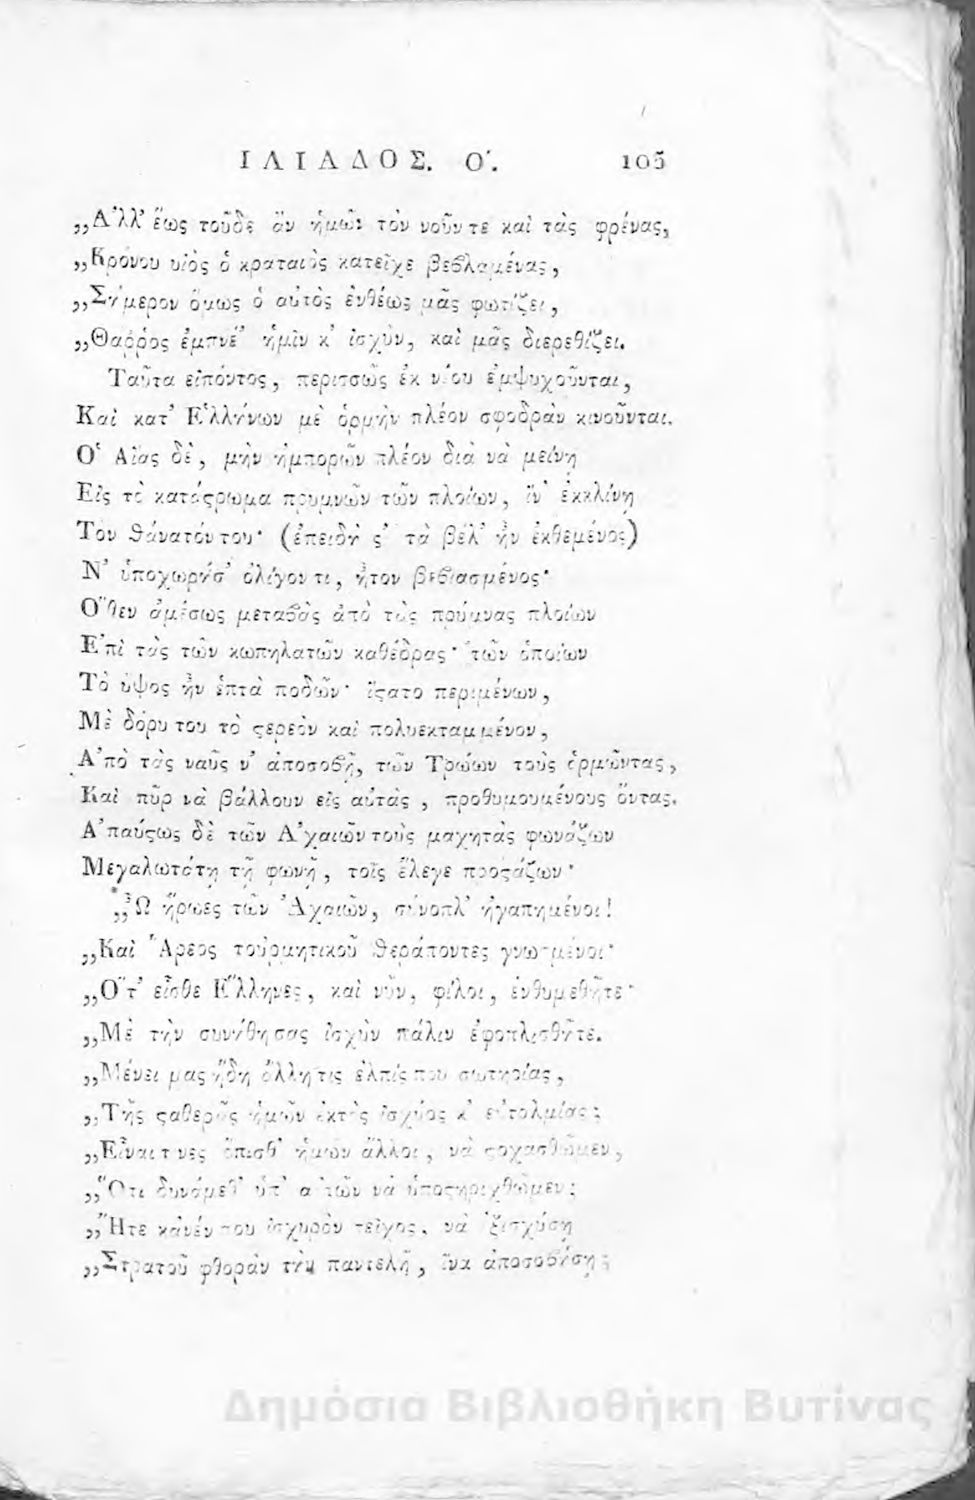 ΙΛΙΑΔΟΣ. Ο΄. 105
,,Ἀλλ' ἕως τοῦδε ἂν ἡμῶν τὸν νοῦν τε καὶ τὰς φρένας,
,,Κρόνου υἱὸς ὁ κραταιὸς κατεῖχε βεβλαμένας,
,,Σήμερον ὅμως ὁ αὐτὸς ἐνθέως μᾶς φωτίζει,
,,Θάῤῥος ἐμπνέ' ἡμῖν κ' ἰσχὺν, καὶ μᾶς διερεθίζει.
Ταῦτα εἰπόντος, περισσῶς ἐκ νέου ἐμψυχοῦνται,
Καὶ κατ' Ἑλλήνων μὲ ὁρμὴν πλέον σφοδρὰν κινοῦνται.
Ὁ Αἴας δὲ, μὴν ἠμπορῶν πλέον διὰ νὰ μείνῃ
Εἰς τὸ κατάϛρωμα πρυμνῶν τῶν πλοίων, ἵν' ἐκκλίνῃ
Τον θάνατόν του· (ἐπειδὴ ϛ' τὰ βέλ' ἦν ἐκθεμένος)
Ν' ὑποχωρήσ' ὀλίγον τι, ἦτον βεβιασμένος·
Ὅθεν ἀμέσως μεταβὰς ἀπὸ τὰς πρύμνας πλοίων
Ἐπὶ τὰς τῶν κωπηλατῶν καθέδρας· τῶν ὁποίων
Τὸ ὕψος ἦν ἑπτὰ ποδῶν· ἵϛατο περιμένων,
Μὲ δόρυ του τὸ ϛερεὸν καὶ πολυεκταμμένον,
Ἀπὸ τὰς ναῦς ν' ἀποσοβῇ, τῶν Τρώων τοὺς ὁρμῶντας,
Καὶ πῦρ νὰ βάλλουν εἰς αὐτὰς, προθυμουμένους ὄντας.
Ἀπαύϛως δὲ τῶν Ἀχαιῶν τοὺς μαχητὰς φωνάζων
Μεγαλωτάτῃ τῇ φωνῇ, τοῖς ἔλεγε προϛάζων·
,,Ὦ ἥρωες τῶν Ἀχαιῶν, σύνοπλ' ἠγαπημένοι!
,,Καὶ Ἄρεος τοὐρμητικοῦ θεράποντες γνωσμένοι·
,,Ὅτ' εἶσθε Ἕλληνες, καὶ νῦν, φίλοι, ἐνθυμεθῆτε·
,,Μὲ τὴν συνήθη σας ἰσχὺν πάλιν ἐφοπλισθῆτε.
,,Μένει μας ἤδη ἄλλη τις ἐλπίς που σωτηρίας,
,,Τῆς ϛαθερᾶς ἡμῶν ἐκτὸς ἰσχύος κ' εὐτολμίας;
,,Εἶναι τινες ὄπισθ' ἡμῶν ἄλλοι, νὰ ϛοχασθῶμεν,
,,Ὅτι δυνάμεθ' ὑπ' αὐτῶν νὰ ὑποϛηριχθῶμεν;
,,Ἤτε κἀνέν που ἰσχυρὸν τεῖχος, νὰ 'ξισχύσῃ
,,Στρατοῦ φθορὰν τὴν παντελῆ, ἵνα ἀποσοβήσῃ;
Δημόσια Βιβλιοθήκη Βυτίνας